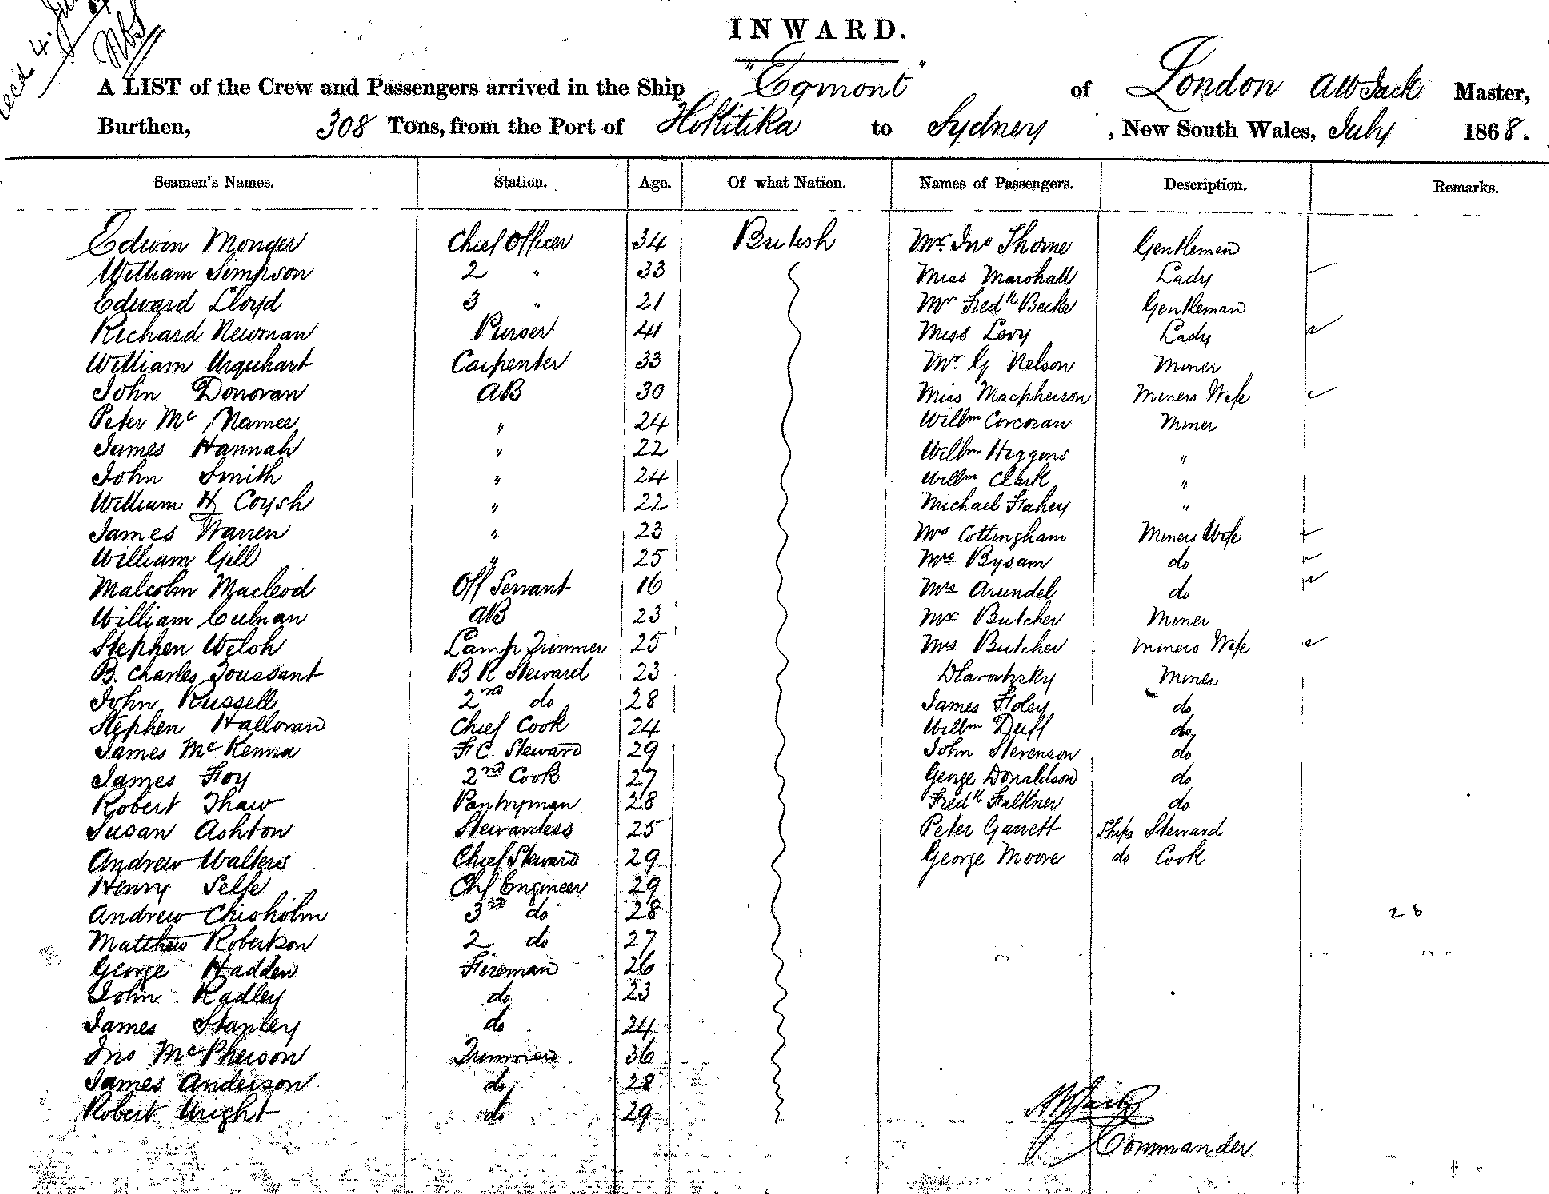 INWARD.
A LIST of the Crew and Passengers arrived in the Ship "Egmont" of London AW Jack Master,
Burthen, 308 Tons, from the Port of Hokitika to Sydney, New South Wales, July 1868.
Seamen's Names. Station. Age. Of what Nation. Names of Passengers. Description. Remarks.
Edwin Monger Chief Officer 34 British Mr. Jno Thorne Gentleman
William Simpson 2 " 33 Miss Marshall Lady
Edward Lloyd 3 " 21 Mr Fredk Gentleman
Richard Newman Purser 41 Miss Levy Lady
William Urquhart Carpenter 33 Mr. G Nelson Miner
John Donovan AB 30 Miss Macpherson Miners Wife
Peter Mc Namee " 24 Willm Corcoran Miner
James Hannah " 22 Willm Higgons "
John Smith " 24 Willm Clark "
William H Coysh " 22 Michael Flahey "
James Warren " 23 Mrs Cottingham Miners Wife
William Gill " 25 Mrs Bysam do
Malcolm Macleod Off Servant 16 Mrs Arundel do
William AB 23 Mr Butcher Miner
Stephen Welsh Lamp Trimmer 25 Mrs Butcher Miners Wife
B. Charles Toussant B R Steward 23 Miner
John Russell 2nd do 28 James Foley do
Stephen Halloran Chief Cook 24 Willm Duff do
James McKenna F.C. Steward 29 John Stevenson do
James Foy 2nd Cook 27 George Donaldson do
Robert Thaw Pantryman 28 Fredk Falkner do
Susan Ashton Stewardess 25 Peter Garrett Ships Steward
Andrew Walters Chief Steward 29 George Moore do Cook
Henry Selfe Chf Engineer 29
Andrew Chisholm 3rd do 28 28
Matthew Robertson 2 do 27
George Hadden Fireman 26
John Radley do 23
James Stanley do 24
Jno McPherson Trimmer 36
James Anderson do 28
Robert Wright do 29
Commander